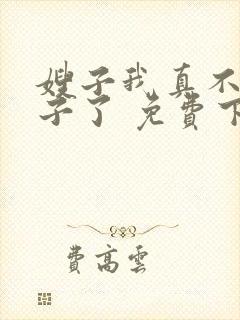 嫂子我真不
子了 免费下
费高云